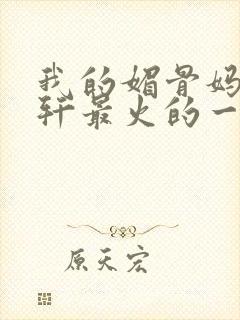 我的媚骨妈
轩最火的一
原天宏